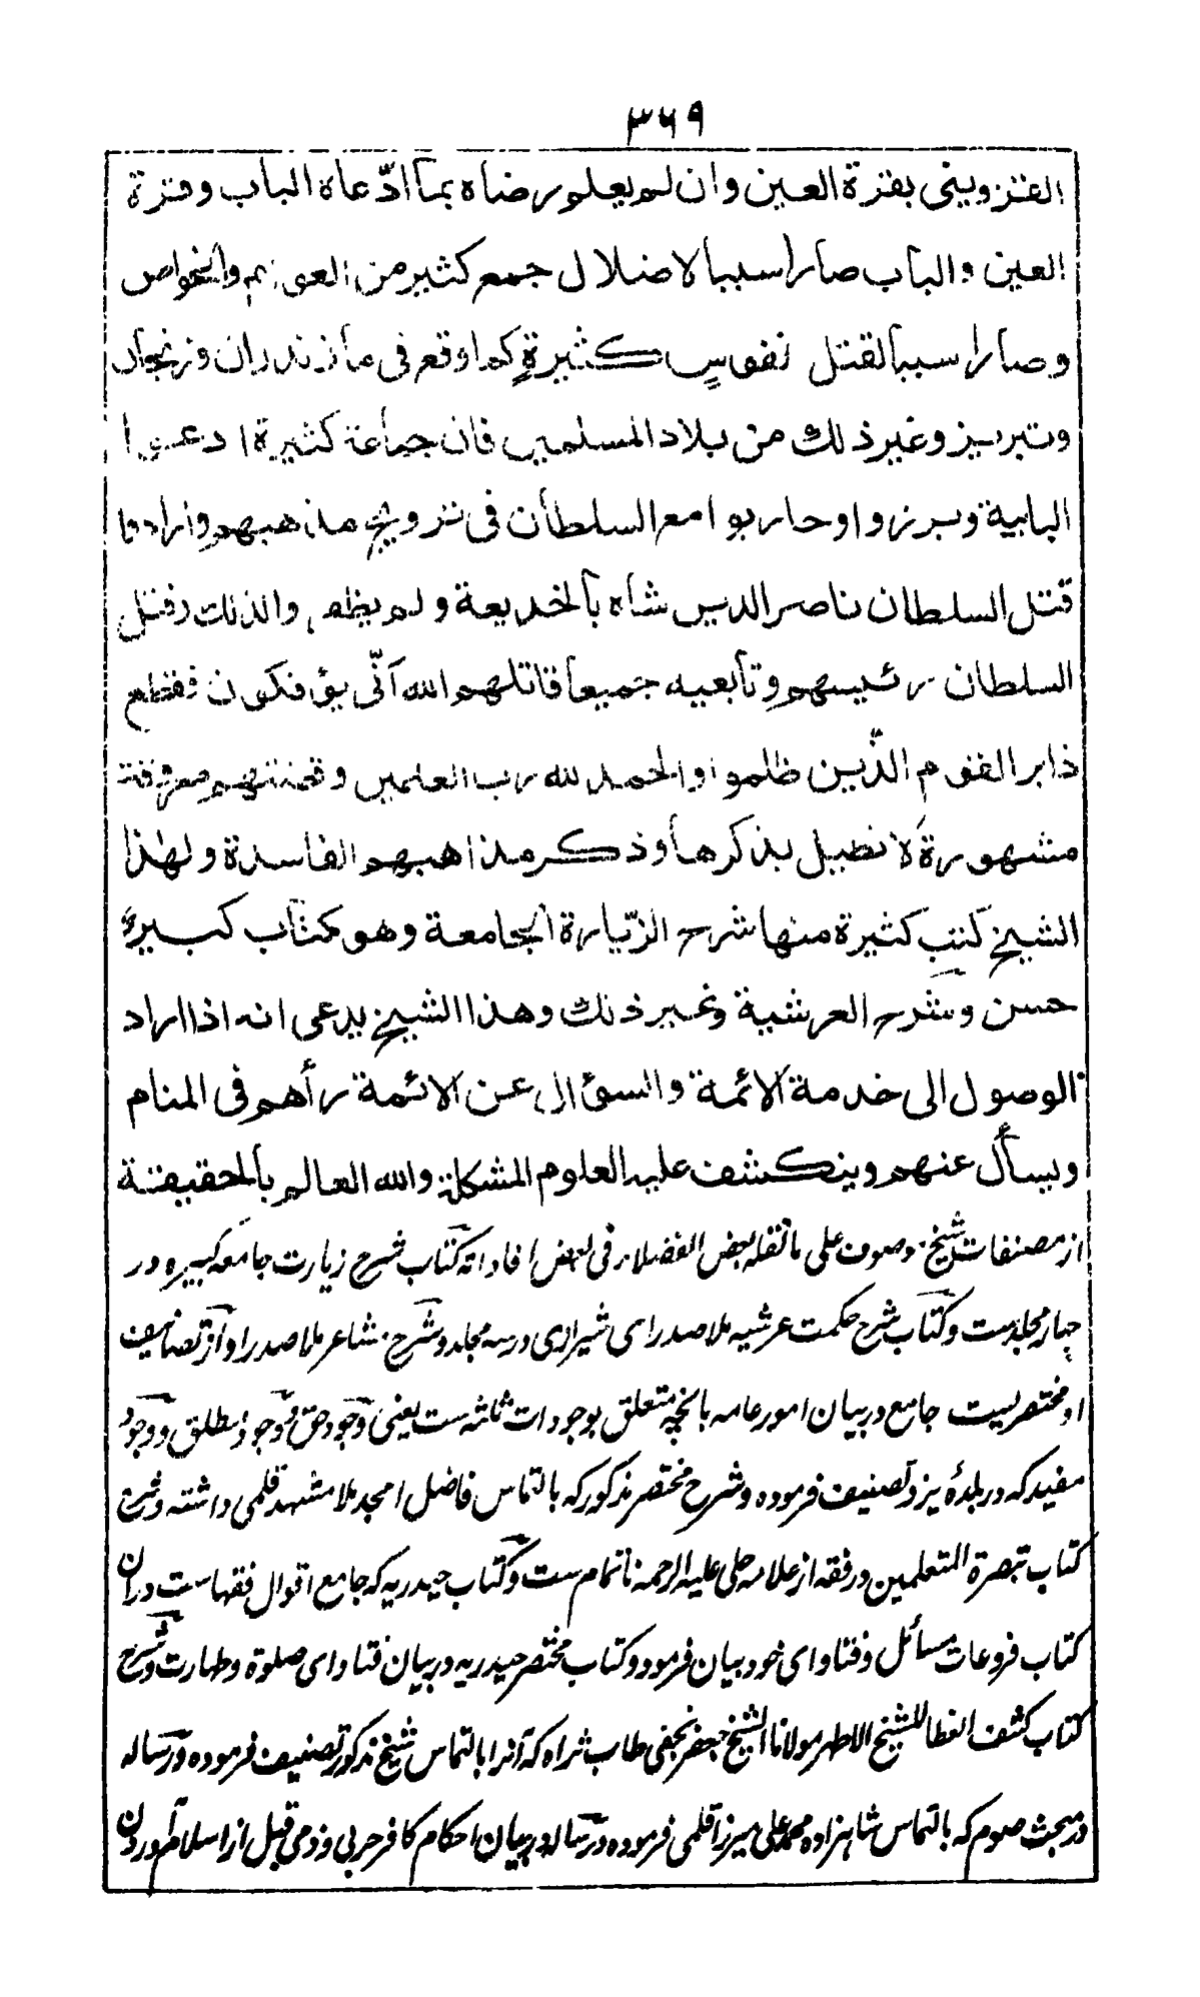 ۳۶۹
القزوینی بقرة العین وان لم یعلم رضاه بما ادّعاه الباب وقرة
العین والباب صارا سببا لاضلال جمع کثیر من العوام والخواص
وصارا سببا لقتل نفوسٍ کثیرةٍ کما وقع فی مازندران وزنجان
وتبریز وغیر ذلك من بلاد المسلمین فان جماعة کثیرة ادعوا
البابیة وبرزوا وحاربوا مع السلطان فی ترویج مذهبهم وارادوا
قتل السلطان ناصر الدین شاه بالخدیعة ولم یظفروا لذلك فقتل
السلطان رئیسهم وتابعیه جمیعا قاتلهم الله أنّی یؤفکون فقطع
دابر القوم الّذین ظلموا والحمد لله رب العلمین وقصتهم معروفة
مشهورة لا نطیل بذکرها وذکر مذاهبهم الفاسدة ولهذا
الشیخ کتب کثیرة منها شرح الزّیارة الجامعة وهو کتاب کبیر
حسن وشرح العرشیة وغیر ذلك وهذا الشیخ یدعی انه اذا اراد
الوصول الی خدمة الائمة والسؤال عن الائمة رأهم فی المنام
ویسأل عنهم وینکشف علیه العلوم المشکلة والله العالم بالحقیقة
از مصنفات شیخ موصوف علی ما نقله بعض الفضلاء فی بعض افاداته کتاب شرح زیارت جامعه کبیره در
چهار مجلدست وکتاب شرح حکمت عرشیه ملا صدرای شیرازی در سه مجلد وشرح مشاعر ملا صدرا واز تصانیف
او مختصریست جامع در بیان امور عامه بانچه متعلق بوجودات ثلثه ست یعنی وجود حق ووجود مطلق ووجود
مفید که در بلدهٔ یزد تصنیف فرموده وشرح مختصر مذکور که بالتماس فاضل امجد ملا مشهد قلمی داشته وشرح
کتاب تبصرة المتعلمین در فقه از علامه حلی علیه الرحمه ناتمام ست وکتاب حیدریه که جامع اقوال فقهاست در ان
کتاب فروعات مسائل وفتاوای خود بیان فرموده وکتاب مختصر حیدریه در بیان فتاوای صلوة وطهارت وشرح
کتاب کشف الغطا للشیخ الاطهر مولانا الشیخ جعفر نجفی طاب ثراه که آنرا بالتماس شیخ مذکور تصنیف فرموده ورساله
در مبحث صوم که بالتماس شاهزاده محمد علی میرزا قلمی فرموده ورساله در بیان احکام کافر حربی وذمی قبل از اسلام آوردن